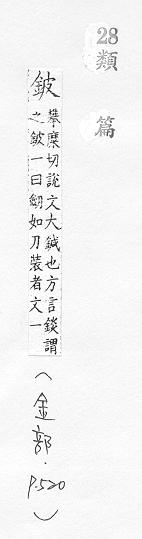 28
類篇
鈹攀糜切說文大鍼也方言錟謂
之鈹一曰劒如刀裝者文一
(金部.P.520)